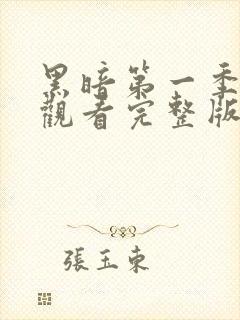 黑暗第一季
觀看完整版
張玉東